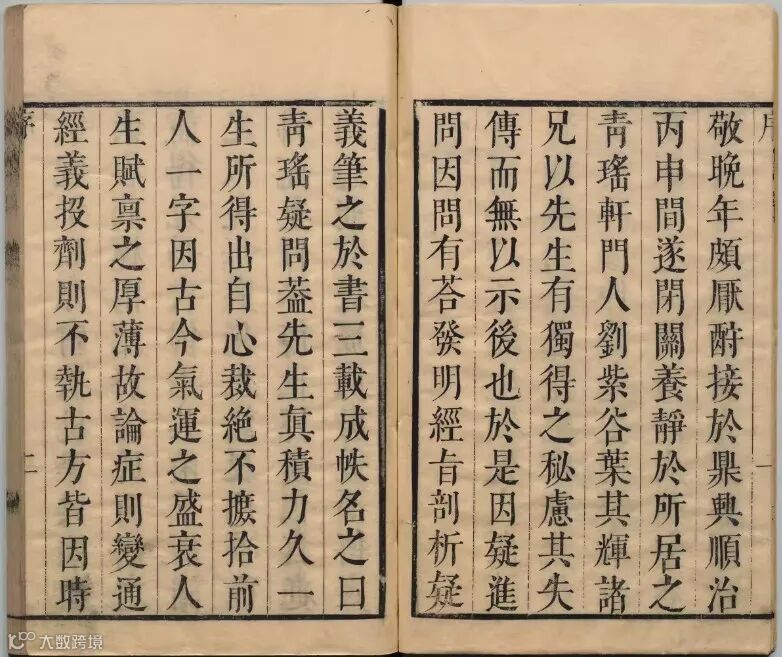 敬晚年頗厭酧接於鼎興順治
丙申間遂閉關養靜於所居之
青瑤軒門人劉紫谷葉其輝諸
兄以先生有獨得之秘慮其失
傳而無以示後也於是因疑進
問因問有荅發明經㫖剖析疑
義筆之於書三載成帙名之曰
青瑤疑問葢先生真積力久一
生所得出自心裁絶不摭拾前
人一字因古今氣運之盛衰人
生賦禀之厚薄故論症則變通
經義投劑則不執古方皆因時
序
二
大数跨境